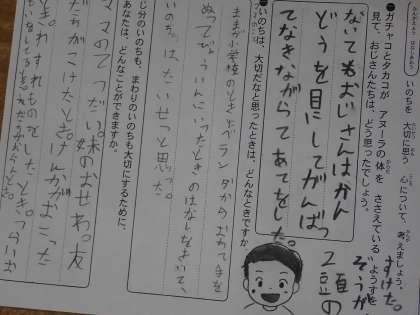 かんがえよう　はなしあおう
いのちを　大切に思う　心について　考えましょう。
ガチャコとタカコが　アヌーラの体を　ささえている　ようすを
見て、おじさんたちは、どう思ったでしょう。
すけた。
ぞうが
2頭の
ないてもおじさんはかん
どうを目にしてがんばっ
てなきながらてあてをした。
いのちは、大切だなと思ったときは、どんなときですか
ベランダからおちて
いのちは、たいせつと思った。
じ分のいのちも、まわりのいのちも大切にするために、
あなたは、どんなことができますか。
ママのてつだい。妹のおせわ。友
だちがこけたとき。けんかがおこった
とき。わすれものをしたとき。つらいお